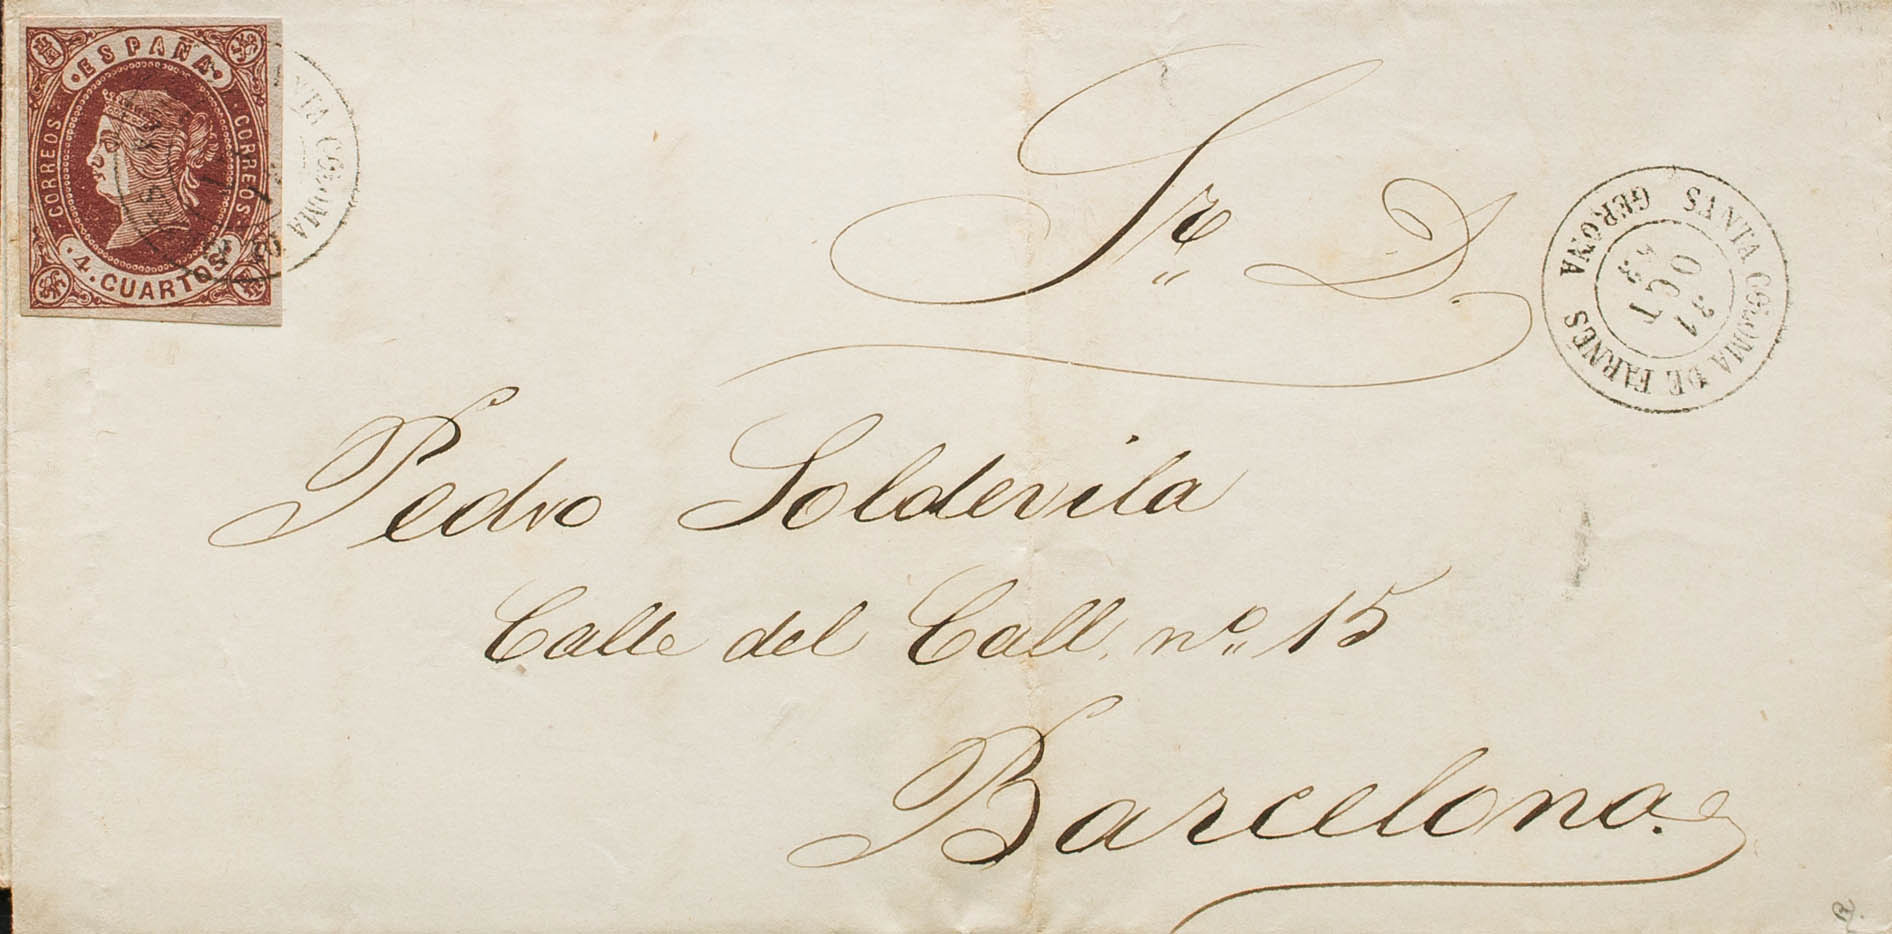 ESPAÑA
CORREOS
CORREOS
4. CUARTOS
NTA COLOMA
Sr. D.
SANTA COLOMA DE FARNES
GERONA
21
OCT
63
Pedro Soldevila
Calle del Call, nº 15
Barcelona.